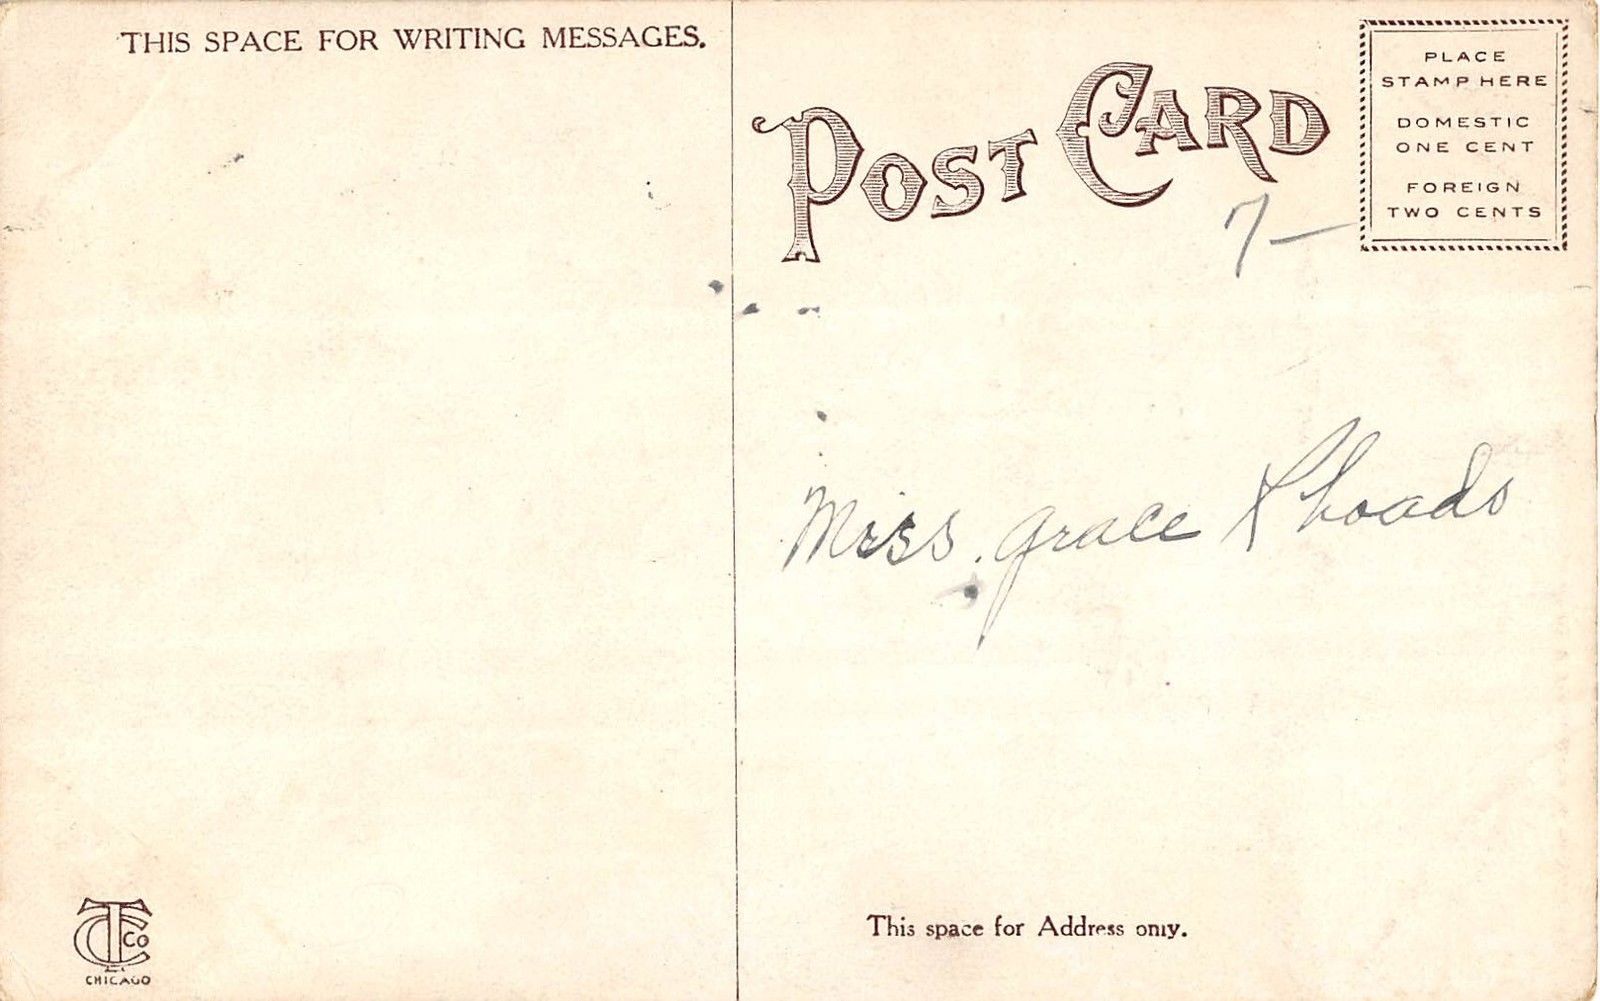 THIS SPACE FOR WRITING MESSAGES.
POST CARD
PLACE
STAMP HERE
DOMESTIC
ONE CENT
FOREIGN
TWO CENTS
7—
Miss. Grace Rhoads
This space for Address only.
CTCo
CHICAGO